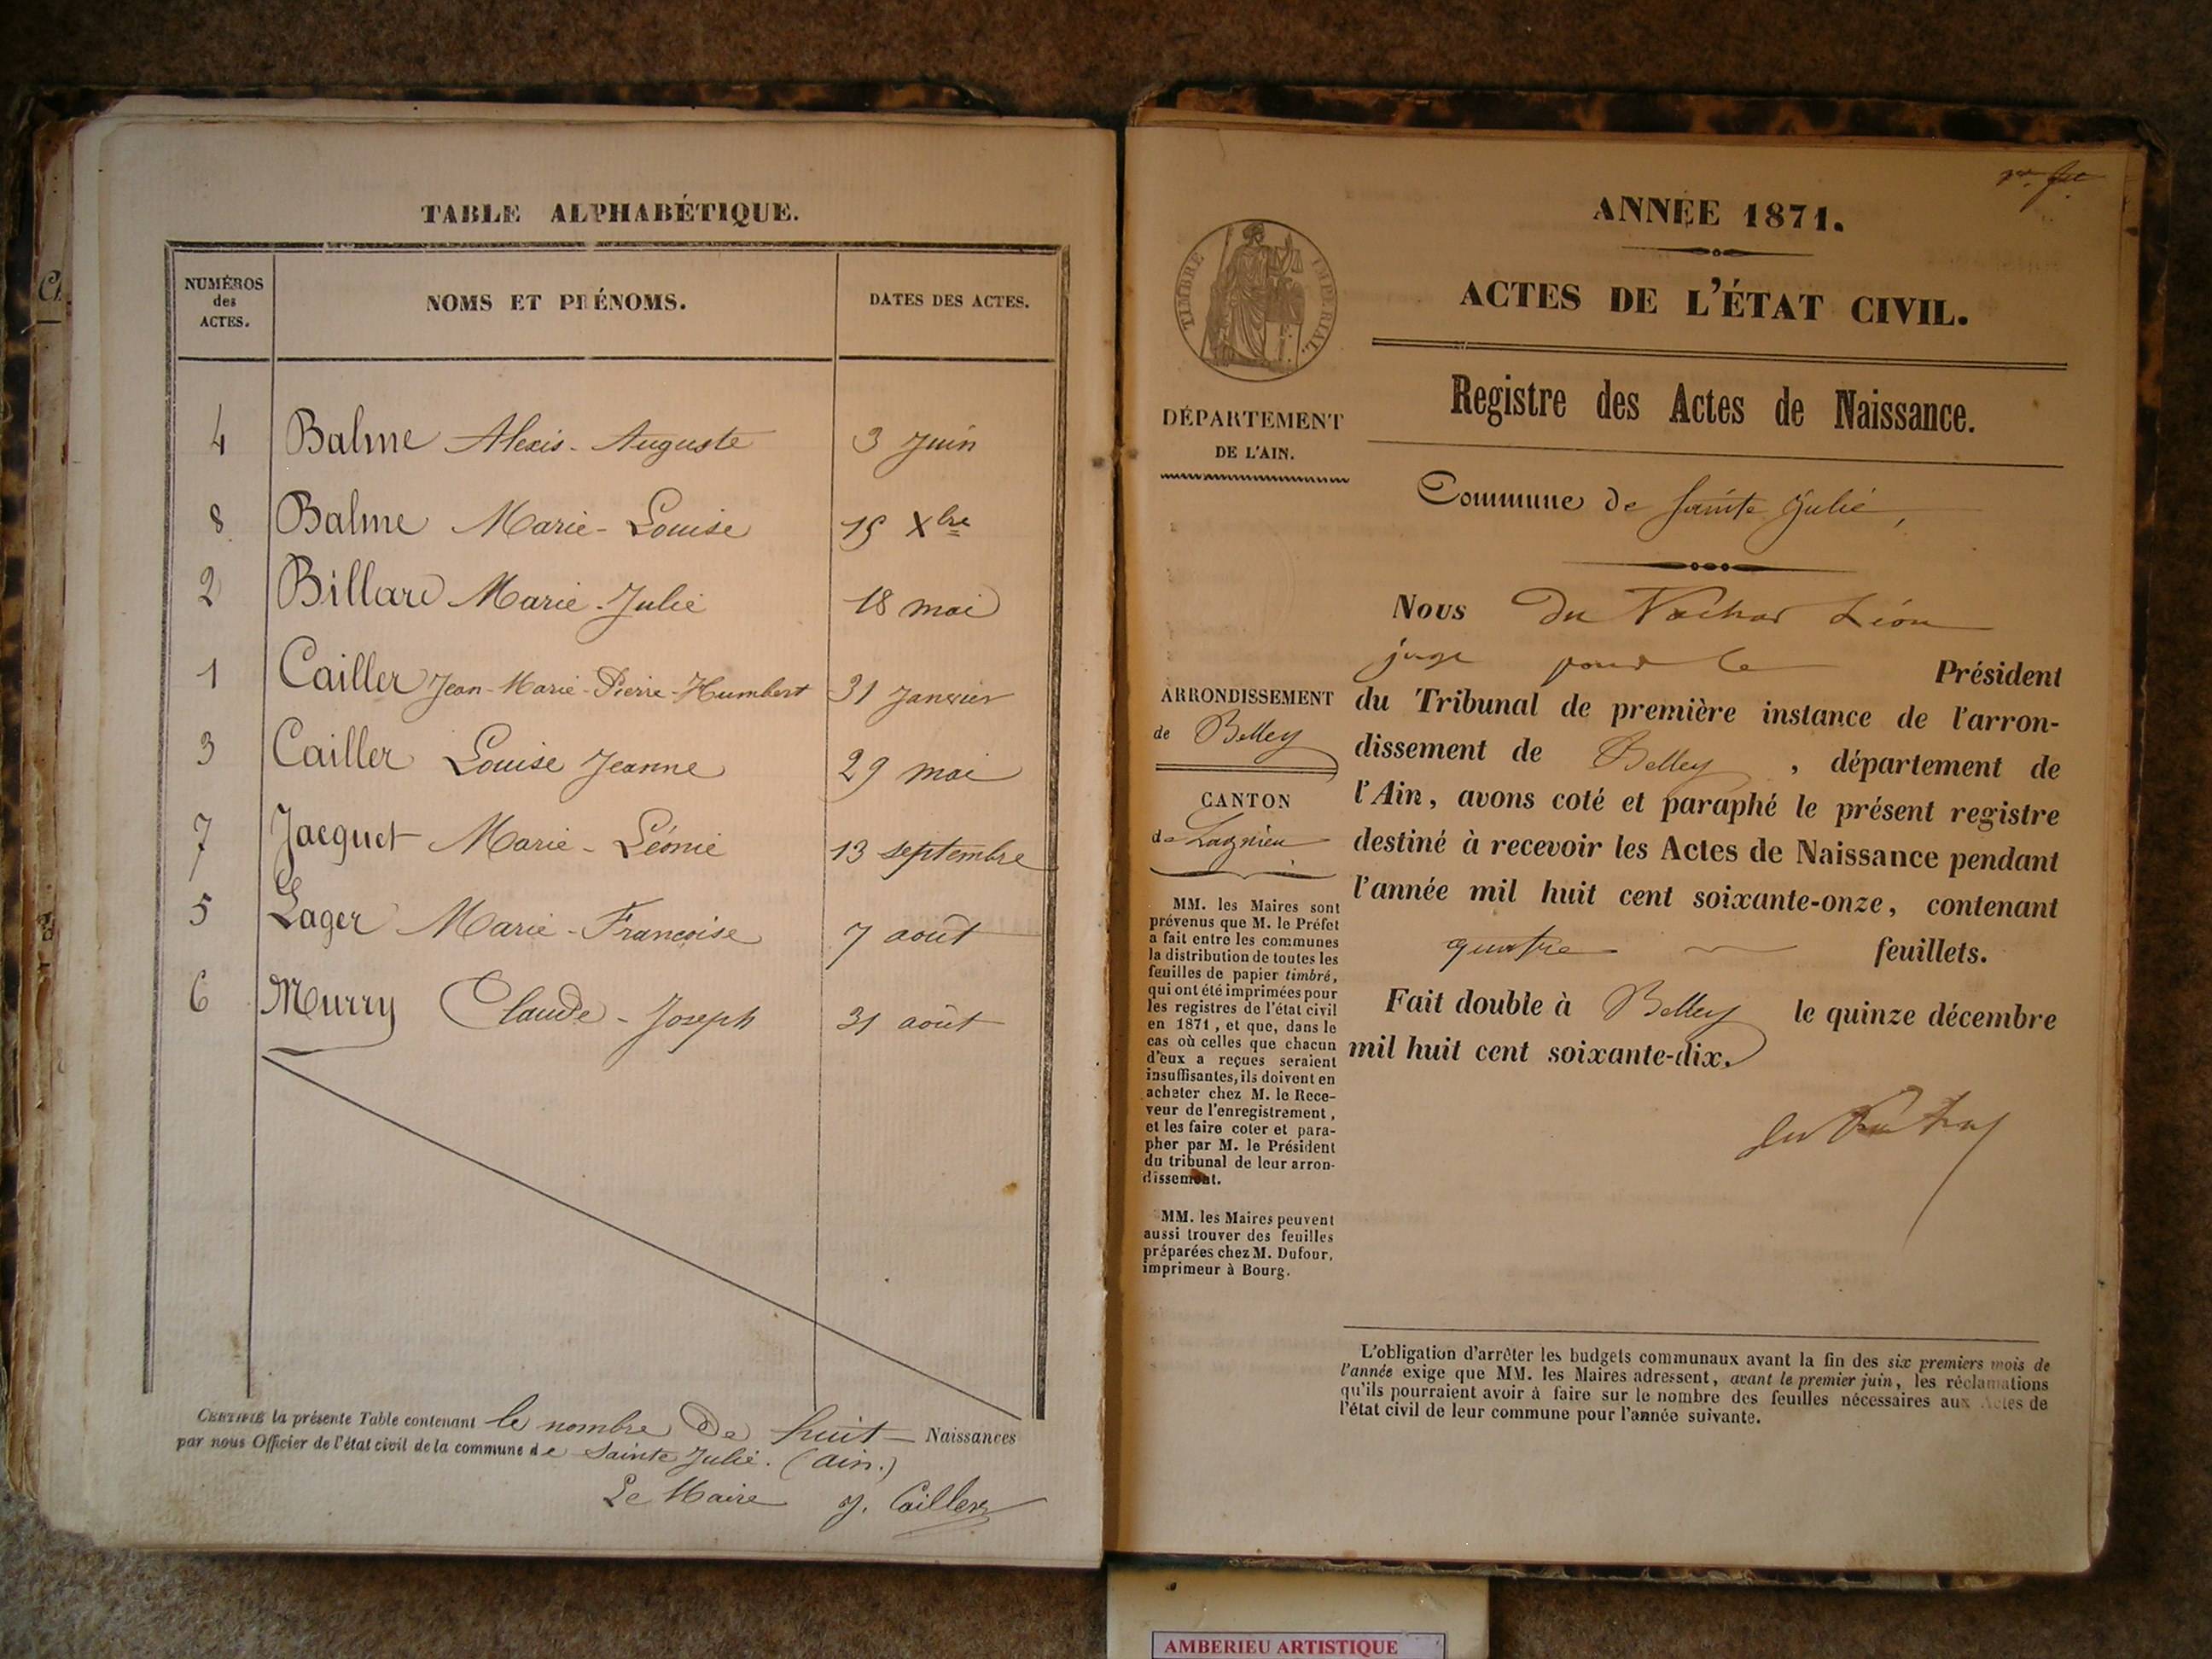 TABLE ALPHABÉTIQUE.
NUMÉROS
des
ACTES.
NOMS ET PRÉNOMS.
DATES DES ACTES.
4 Balme Alexis-Auguste 3 Juin
8 Balme Marie-Louise 15 Xbre
2 Billard Marie-Julie 18 mai
1 Cailler Jean-Marie-Pierre-Humbert 31 Janvier
3 Cailler Louise Jeanne 29 mai
7 Jacquet Marie-Léonie 13 septembre
5 Lager Marie-Françoise 7 août
6 Murry Claude-Joseph 31 août
CERTIFIÉ la présente Table contenant le nombre de huit Naissances
par nous Officier de l'état civil de la commune de Sainte Julie. (ain.)
Le Maire J. Cailler
ANNÉE 1871.
ACTES DE L'ÉTAT CIVIL.
TIMBRE IMPERIAL.
Registre des Actes de Naissance.
DÉPARTEMENT
DE L'AIN.
Commune de Sainte Julie,
Nous Du Léon
juge pour le Président
du Tribunal de première instance de l'arron-
dissement de Belley, département de
l'Ain, avons coté et paraphé le présent registre
destiné à recevoir les Actes de Naissance pendant
l'année mil huit cent soixante-onze, contenant
quatre feuillets.
Fait double à Belley le quinze décembre
mil huit cent soixante-dix.
ARRONDISSEMENT
de Belley
CANTON
de Lagnieu
MM. les Maires sont
prévenus que M. le Préfet
a fait entre les communes
la distribution de toutes les
feuilles de papier timbré,
qui ont été imprimées pour
les registres de l'état civil
en 1871, et que, dans le
cas où celles que chacun
d'eux a reçues seraient
insuffisantes, ils doivent en
acheter chez M. le Rece-
veur de l'enregistrement,
et les faire coter et para-
pher par M. le Président
du tribunal de leur arron-
dissement.
MM. les Maires peuvent
aussi trouver des feuilles
préparées chez M. Dufour,
imprimeur à Bourg.
L'obligation d'arrêter les budgets communaux avant la fin des six premiers mois de
l'année exige que MM. les Maires adressent, avant le premier juin, les réclamations
qu'ils pourraient avoir à faire sur le nombre des feuilles nécessaires aux Actes de
l'état civil de leur commune pour l'année suivante.
AMBERIEU ARTISTIQUE